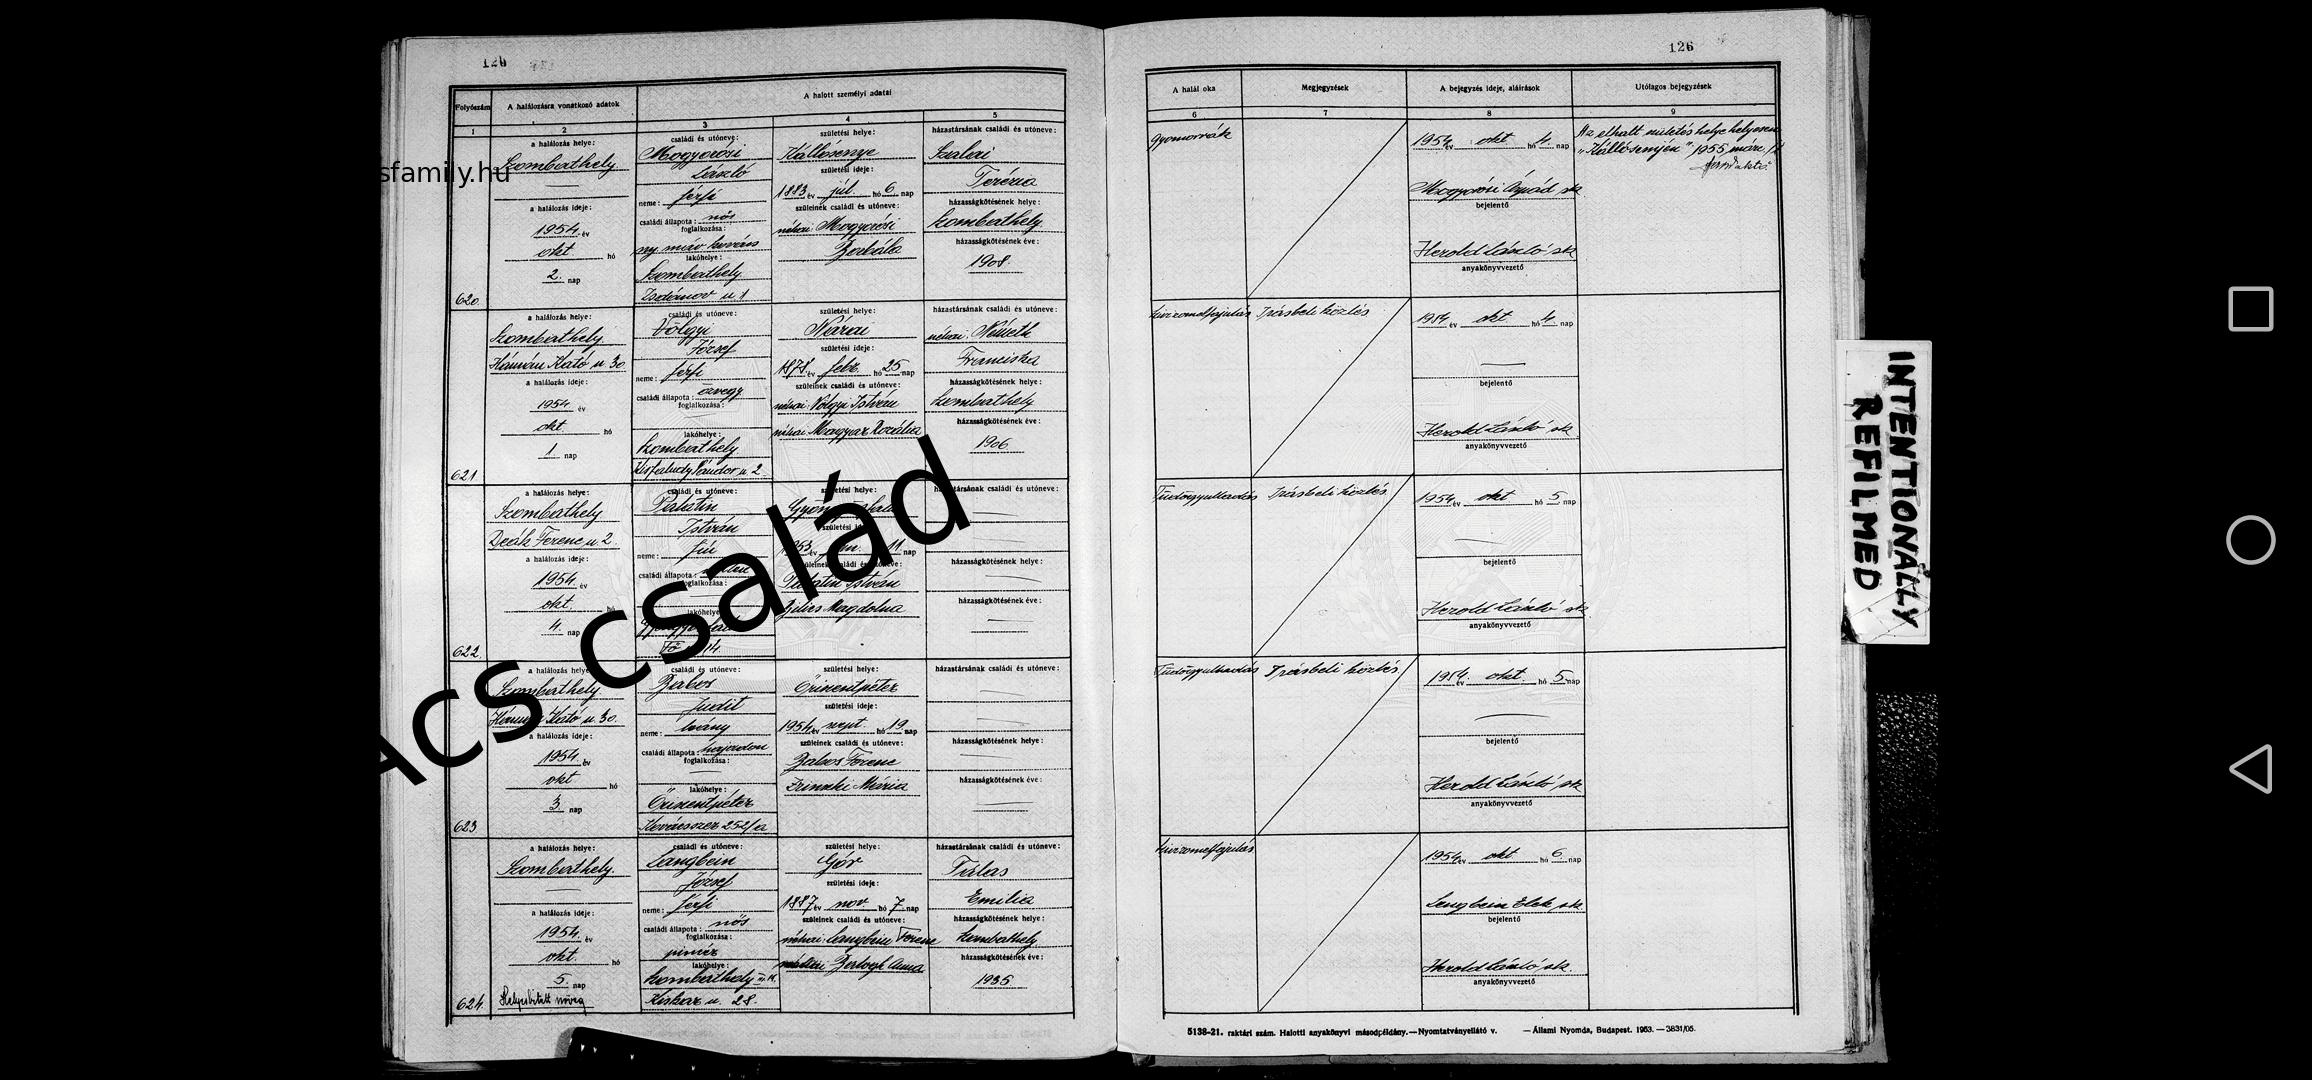 126
126
Folyószám
A halálozásra vonatkozó adatok
A halott személyi adatai
1
2
3
4
5
a halálozás helye:
Szombathely
a halálozás ideje:
1954. év
okt. hó
2. nap
620.
családi és utóneve:
Mogyorósi
László
neme: férfi
családi állapota: nős
foglalkozása:
ny máv kovács
lakóhelye:
Szombathely
Zsdánov u 1
születési helye:
Kállósenye
születési ideje:
1883 év júl. hó 6 nap
szüleinek családi és utóneve:
néhai Mogyorósi
Borbála
házastársának családi és utóneve:
Szalai
Terézia
házasságkötésének helye:
Szombathely.
házasságkötésének éve:
1908.
a halálozás helye:
Szombathely.
Hámán Kató u 30.
a halálozás ideje:
1954 év
okt hó
1. nap
621
családi és utóneve:
Völgyi
József
neme: férfi
családi állapota: özvegy
foglalkozása:
lakóhelye:
Szombathely.
Kisfaludy Sándor u 2
születési helye:
Nárai
születési ideje:
1878 év febr. hó 25 nap
szüleinek családi és utóneve:
néhai Völgyi István
néhai Magyar Rozália
házastársának családi és utóneve:
néhai Németh
Franciska
házasságkötésének helye:
Szombathely
házasságkötésének éve:
1906
a halálozás helye:
Szombathely
Deák Ferenc u. 2.
a halálozás ideje:
1954. év
okt. hó
4. nap
622.
családi és utóneve:
Palatin
István
neme: fiú
családi állapota: nőtlen
foglalkozása:
lakóhelye:
Fő 14
születési helye:
születési ideje:
1953. év jan. 11 nap
szüleinek családi és utóneve:
Palatin István
Magdolna
házastársának családi és utóneve:
házasságkötésének helye:
házasságkötésének éve:
a halálozás helye:
Szombathely.
Hámán Kató u 30.
a halálozás ideje:
1954. év
okt hó
3. nap
623
családi és utóneve:
Babos
Judit
neme: leány
családi állapota: hajadon
foglalkozása:
lakóhelye:
Őriszentpéter
Kovácsszer 252/a
születési helye:
Őriszentpéter
születési ideje:
1954 év szept. hó 19. nap
szüleinek családi és utóneve:
Babos Ferenc
Mária
házastársának családi és utóneve:
házasságkötésének helye:
házasságkötésének éve:
a halálozás helye:
Szombathely.
a halálozás ideje:
1954. év
okt. hó
5. nap
624.
családi és utóneve:
Langbein
József
neme: férfi
családi állapota: nős
foglalkozása:
pincér
lakóhelye:
Szombathely
Kiskar u. 28.
születési helye:
Gór
születési ideje:
1887 év nov hó 7 nap
szüleinek családi és utóneve:
néhai Langbein Ferenc
Anna
házastársának családi és utóneve:
Tálas
Emília
házasságkötésének helye:
Szombathely
házasságkötésének éve:
1935
A halál oka
Megjegyzések
A bejegyzés ideje, aláírások
Utólagos bejegyzések
6
7
8
9
gyomorrák
1954 év okt hó 4. nap
Mogyorósi Árpád sk
bejelentő
Herold László sk
anyakönyvvezető
Az elhalt születés helye helyesen
"Kállósemjén" 1955 márc
Szívizomelfajulás
Írásbeli közlés
1954 év okt hó 4. nap
bejelentő
Herold László sk
anyakönyvvezető
Tüdőgyulladás
Írásbeli közlés
1954. év okt hó 5. nap
bejelentő
Herold László sk
anyakönyvvezető
Tüdőgyulladás
Írásbeli közlés
1954. év okt. hó 5. nap
bejelentő
Herold László sk
anyakönyvvezető
Szívizomelfajulás
1954. év okt hó 6. nap
Langbein Elek sk.
bejelentő
Herold László sk.
anyakönyvvezető
5138-21. raktári szám. Halotti anyakönyvi másodpéldány.—Nyomtatványellátó v. —Állami Nyomda, Budapest. 1953. —3831/05.
INTENTIONALLY
REFILMED
sfamily.hu
ács család